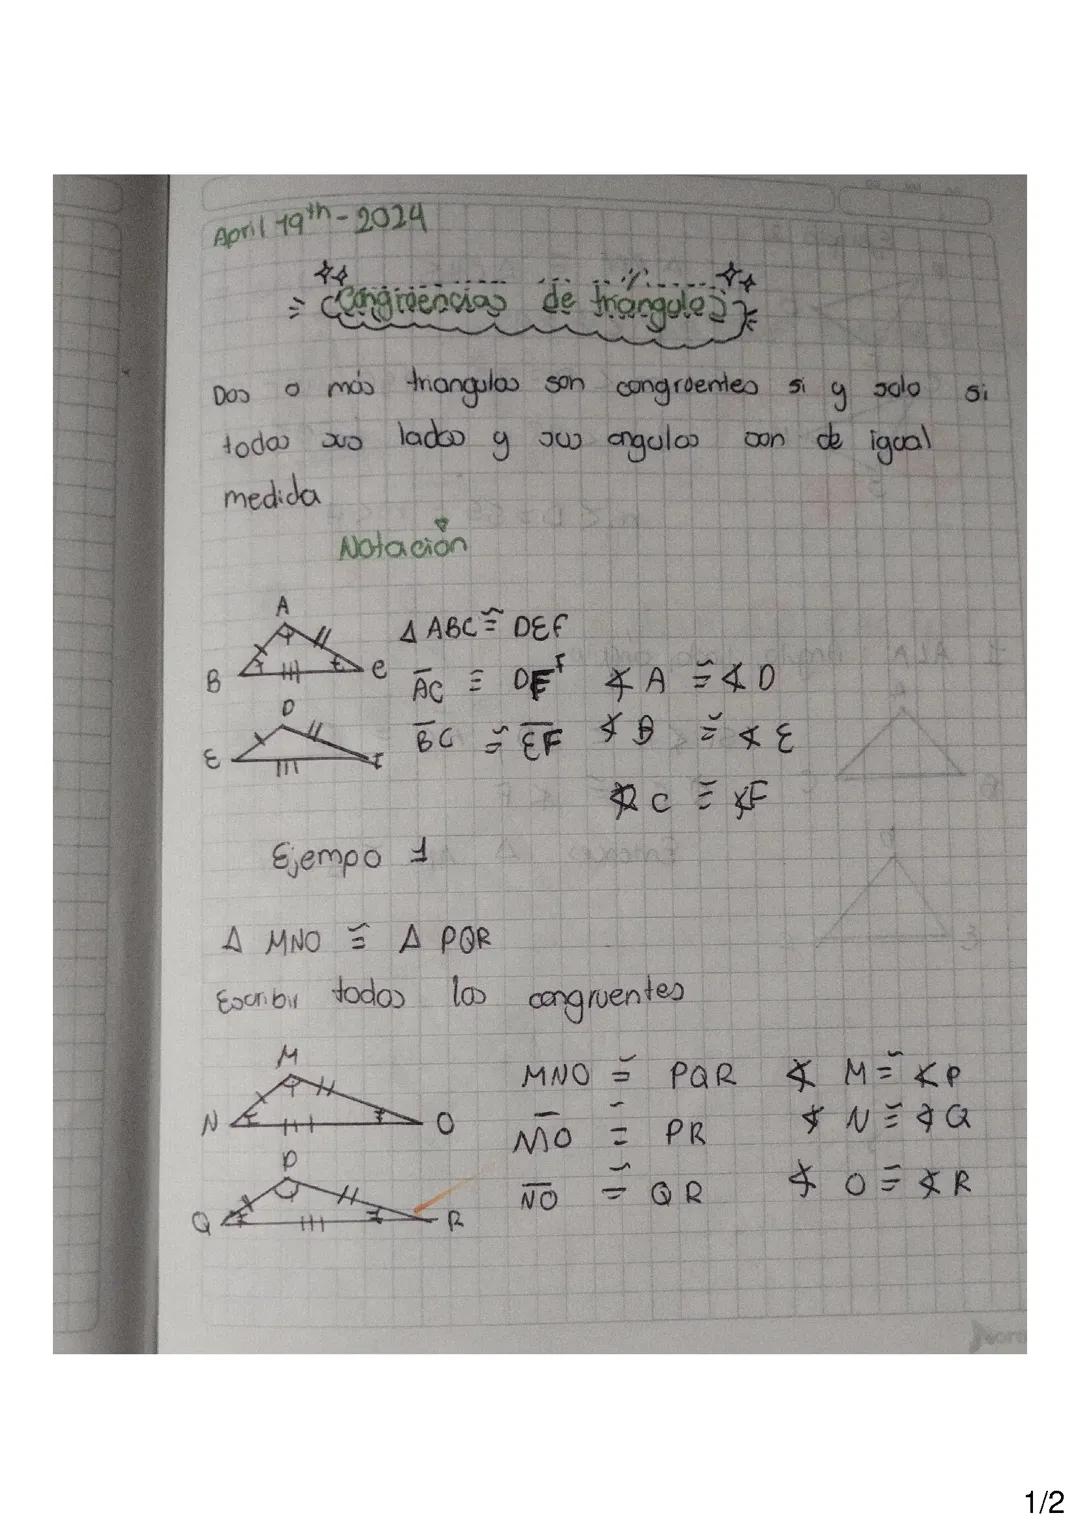 April 19th - 2024
Congruencias de triangulos
Dos o más triangulos son congruentes si y solo si
todos sus lados y sus angulos son de igual
medida
Notación
A
B
C
Δ ABC ≅ DEF
AC ≅ DF ∡ A ≅ ∡ D
D
E
F
BC ≅ EF ∡ B ≅ ∡ E
∡ C ≅ ∡F
Ejempo 1
Δ MNO ≅ Δ PQR
Escribir todos los congruentes
M
N
O
MNO ≅ PQR ∡ M ≅ ∡P
MO ≅ PR ∡ N ≅ ∡ Q
P
Q
R
NO ≅ QR ∡ O ≅ ∡ R
1/2